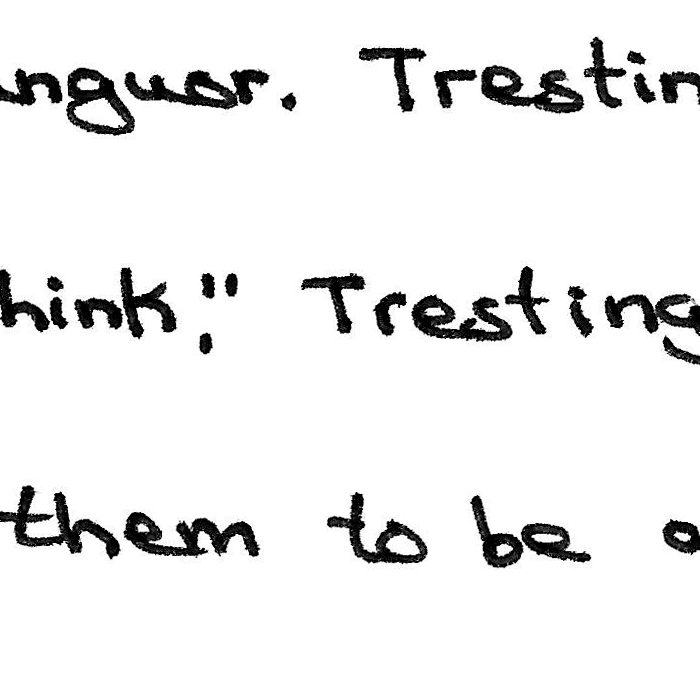 anguor. Trestin
hink," Tresting
them to be a